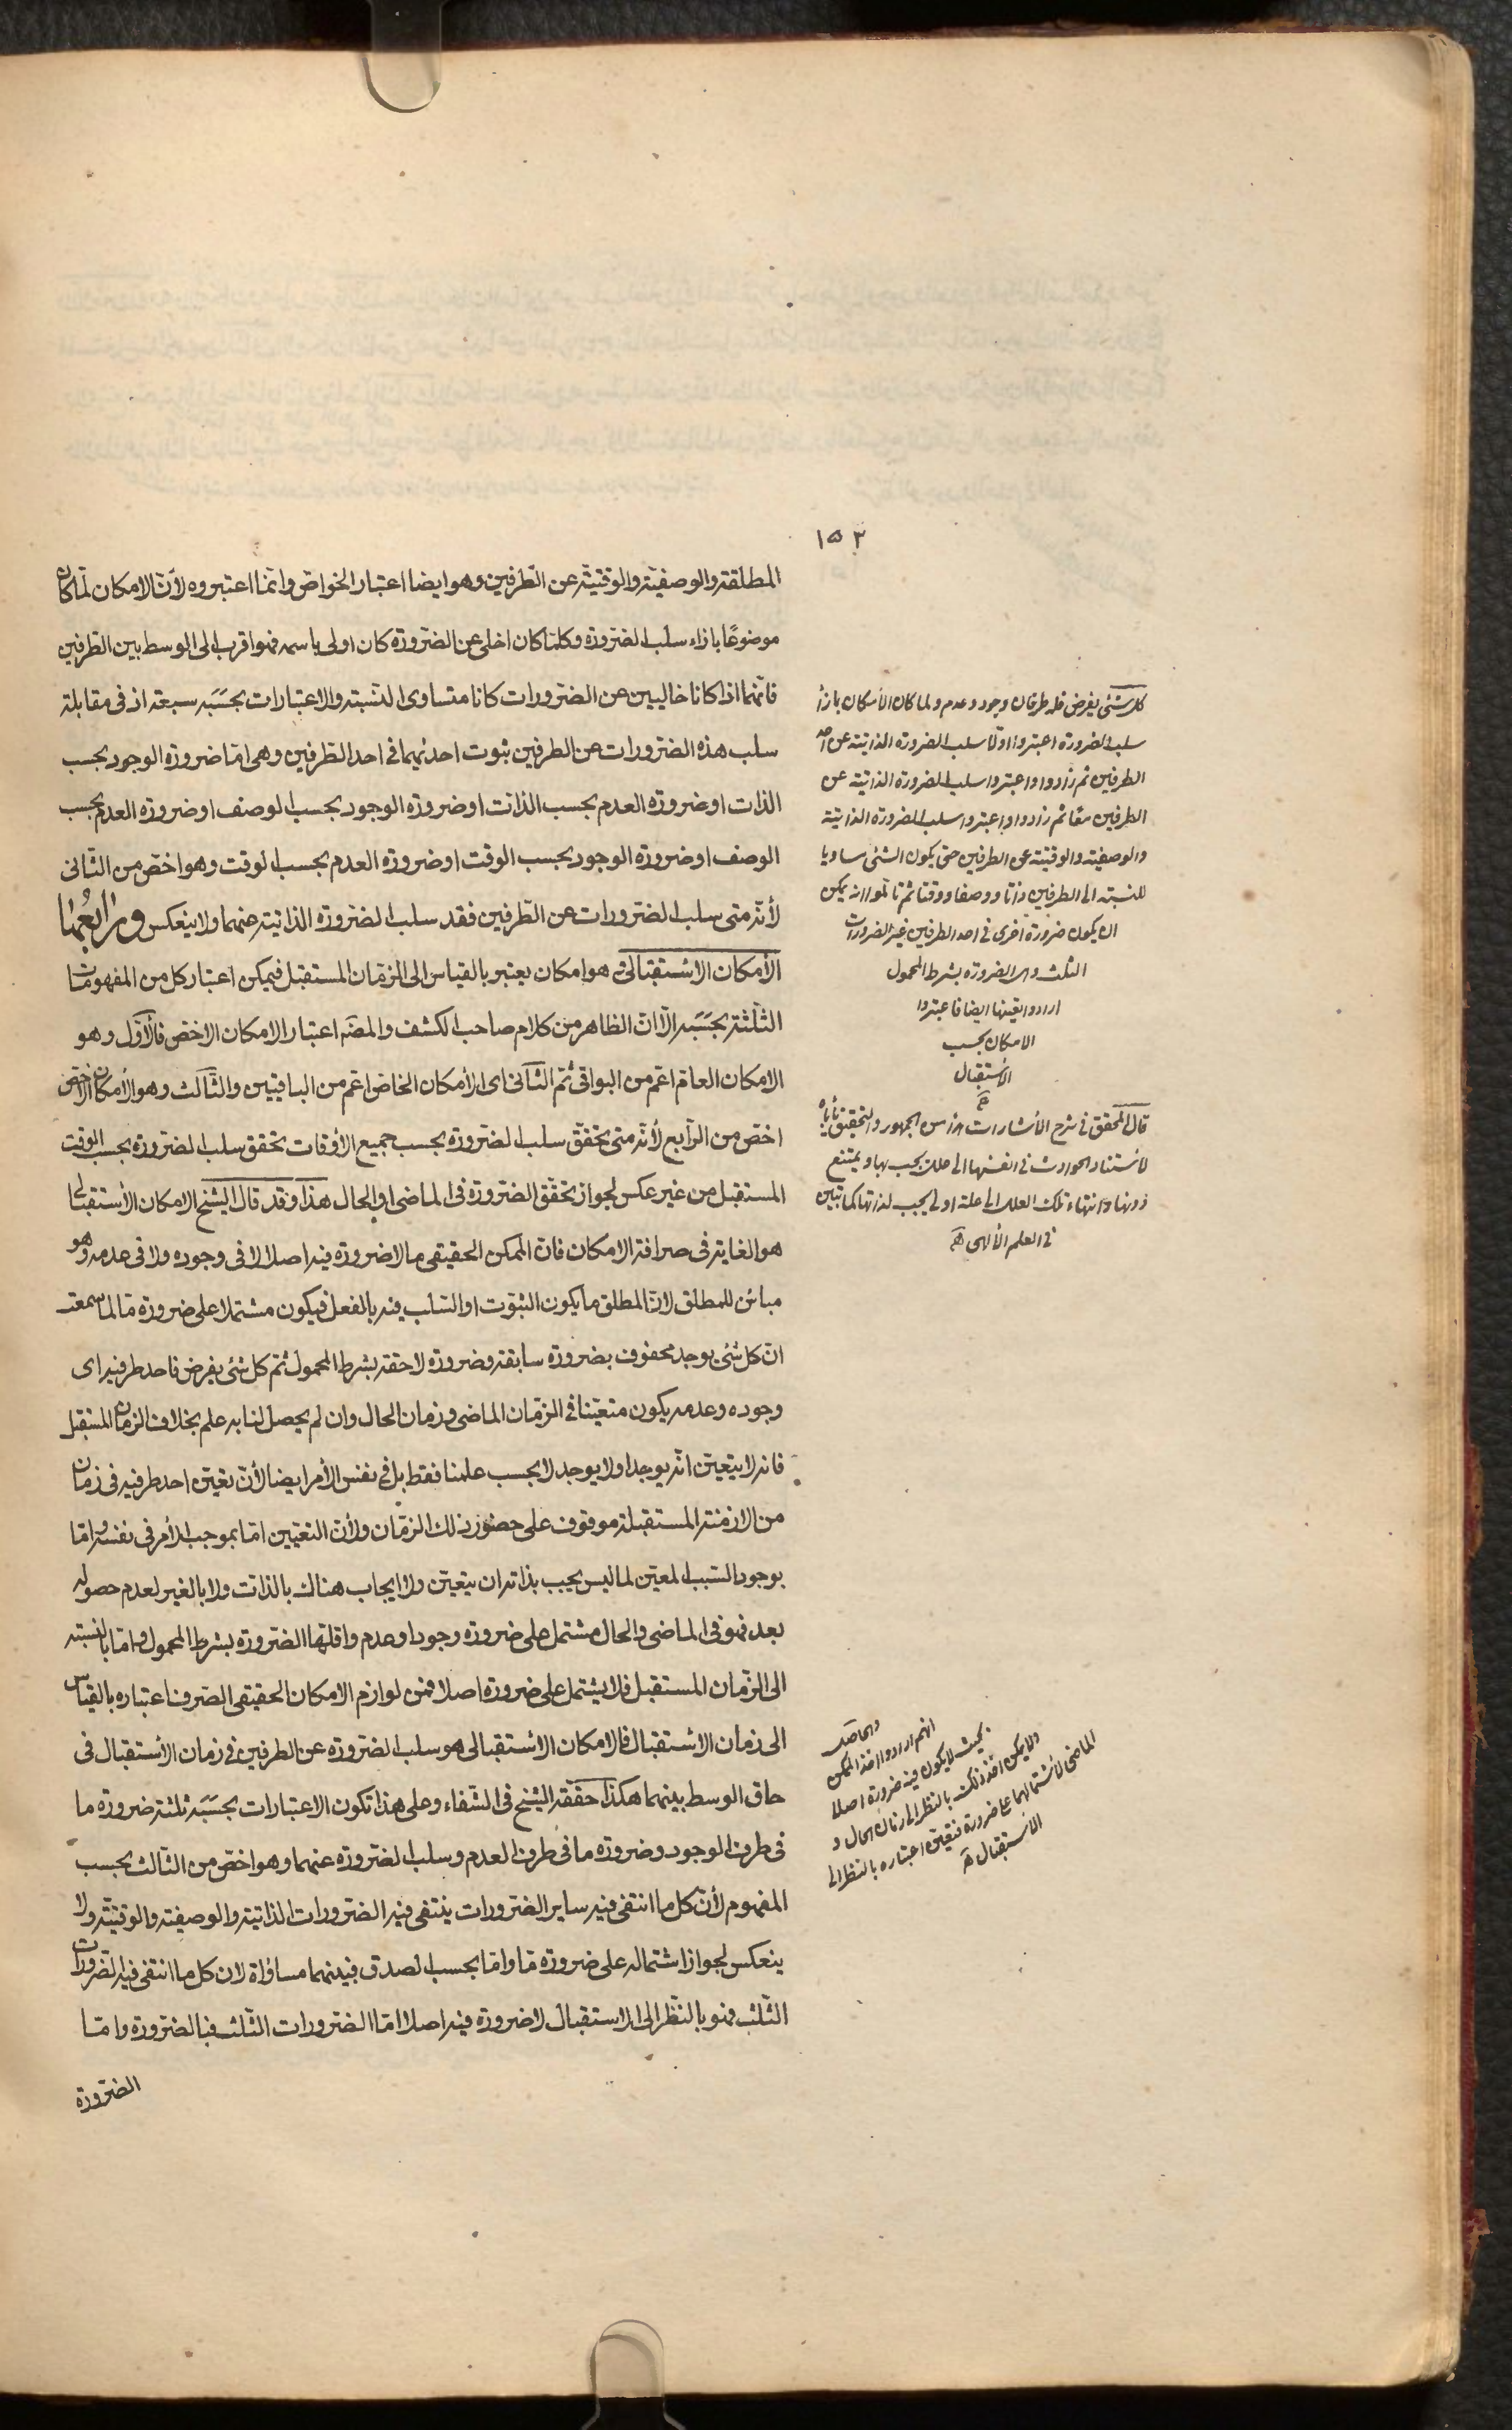 ١٥٣
المطلقة والوصفيّة والوقتيّة عن الطّرفين وهو ايضا اعتبار الخواصّ وانّما اعتبروه لأنّ الامكان لمّا كان
موضوعًا بازاء سلب الضّرورة وكلّما كان اخلى عن الضّرورة كان اولى باسمه فهو اقرب الى الوسط بين الطّرفين
فانّهما اذا كانا خاليين عن الضّرورات كانا متساوى النّسبة والاعتبارات بحسَبَه سبعة اذ فى مقابلة
سلب هذه الضّرورات عن الطرفين ثبوت احديهما فى احد الطّرفين وهى امّا ضرورة الوجود بحسب
الذات او ضرورة العدم بحسب الذات او ضرورة الوجود بحسب الوصف او ضرورة العدم بحسب
الوصف او ضرورة الوجود بحسب الوقت او ضرورة العدم بحسب الوقت وهو اخصّ من الثّانى
لأنّه متى سلب الضّرورات عن الطّرفين فقد سلب الضّرورة الذاتية عنهما ولا ينعكس ورابعُها
الأمكان الاستقبالىّ هو امكان يعتبر بالقياس الى الزمان المستقبل فيمكن اعتبار كل من المفهومات
الثلثة بحسَبَه الّا انّ الظاهر من كلام صاحب الكشف والمصّه اعتبار الامكان الاخصّ فالأوّل وهو
الامكان العام اعمّ من البواقى ثمّ الثّانى اى الأمكان الخاصّ اعمّ من الباقيين والثّالث وهو الأمكان الاخصّ
اخصّ من الرّابع لأنّه متى تحقّق سلب الضّرورة بحسب جميع الأوقات تحقق سلب الضّرورة بحسب الوقت
المستقبل من غير عكس لجواز تحقّق الضّرورة فى الماضى او الحال هذا وقد قال الشيخ الامكان الأستقبالى
هو الغاية فى صرافة الامكان فانّ الممكن الحقيقى ما لا ضرورة فيه اصلا لا فى وجوده ولا فى عدمه وهو
مباين للمطلق لانّ المطلق ما يكون الثبوت او السّلب فيه بالفعل فيكون مشتملا على ضرورة مّا لما سمعت
انّ كل شئ يوجد محفوف بضرورة سابقة وضرورة لاحقة بشرط المحمول ثمّ كل شئ يفرض فاحد طرفيه اى
وجوده وعدمه يكون متعيّنا فى الزمان الماضى وزمان الحال وان لم يحصل لنا به علم بخلاف الزمان المستقبل
فانه لا يتعيّن انّه يوجد او لا يوجد لا بحسب علمنا فقط بل فى نفس الأمر ايضا لأنّ تعيّن احد طرفيه فى زمان
من الازمنة المستقبلة موقوف على حضور ذلك الزمان ولأنّ التعيين امّا بموجب الأمر فى نفسه وامّا
بوجود السّبب المعيّن لما ليس يجب بذاته ان يتعيّن ولا ايجاب هناك بالذات ولا بالغير لعدم حصوله
بعد فهو فى الماضى والحال مشتمل على ضرورة وجود او عدم واقلّها الضّرورة بشرط المحمول وامّا بالنسبة
الى الزّمان المستقبل فلا يشتمل على ضرورة اصلا فمن لوازم الامكان الحقيقى الصّرف اعتباره بالقياس
الى زمان الاستقبال فالامكان الاستقبالى هو سلب الضّرورة عن الطرفين فى زمان الأستقبال فى
حاق الوسط بينهما هكذا حقّقه الشيخ فى الشفاء وعلى هذا تكون الاعتبارات بحسَبَه ثلثة ضرورة ما
فى طرف الوجود وضرورة ما فى طرف العدم وسلب الضّرورة عنهما وهو اخصّ من الثالث بحسب
المفهوم لأنّ كل ما انتفى فيه ساير الضّرورات ينتفى فيه الضّرورات الذاتية والوصفيّة والوقتيّة ولا
ينعكس لجواز اشتماله على ضرورة مّا وامّا بحسب الصدق فبينهما مساواة لان كل ما انتفى فيه الضّرورات
الثّلث فهو بالنّظر الى الاستقبال لا ضرورة فيه اصلا امّا الضّرورات الثّلث فبالضّرورة وامّا
الضّرورة
كل شئى يفرض فله طرفان وجود وعدم ولما كان الأمكان بازأ
سلب الضرورة اعتبروا اوّلا سلب الضرورة الذاتية عن احد
الطرفين ثم زادوا واعتبروا سلب الضرورة الذاتية عن
الطرفين معًا ثم زادوا واعتبروا سلب الضرورة الذاتية
والوصفية والوقتية عن الطرفين حتى يكون الشئى مساويا
للنسبة الى الطرفين ذاتا ووصفا ووقتا ثم تأملوا انه يمكن
ان يكون ضرورة اخرى فى احد الطرفين غير الضرورات
الثلث وهى الضرورة بشرط المحمول
ارادوا نفيها ايضا فاعتبروا
الامكان بحسب
الأستقبال
قال المحقق فى شرح الأشارات هذا من الجمهور والتحقيق يأباه
لأستناد الحوادث فى انفسها الى علل يجب بها ويمتنع
دونها وانتهاء تلك العلل الى علة اولى يجب لذاتها كما تبين
فى العلم الألهى
والحاصل
انهم ارادوا اخذ الممكن
بحيث لا يكون فيه ضرورة اصلا
ولا يمكن اخذ ذلك بالنظر الى زمان الحال و
الماضى لأشتمالهما على ضرورة فتعين اعتباره بالنظر الى
الاستقبال